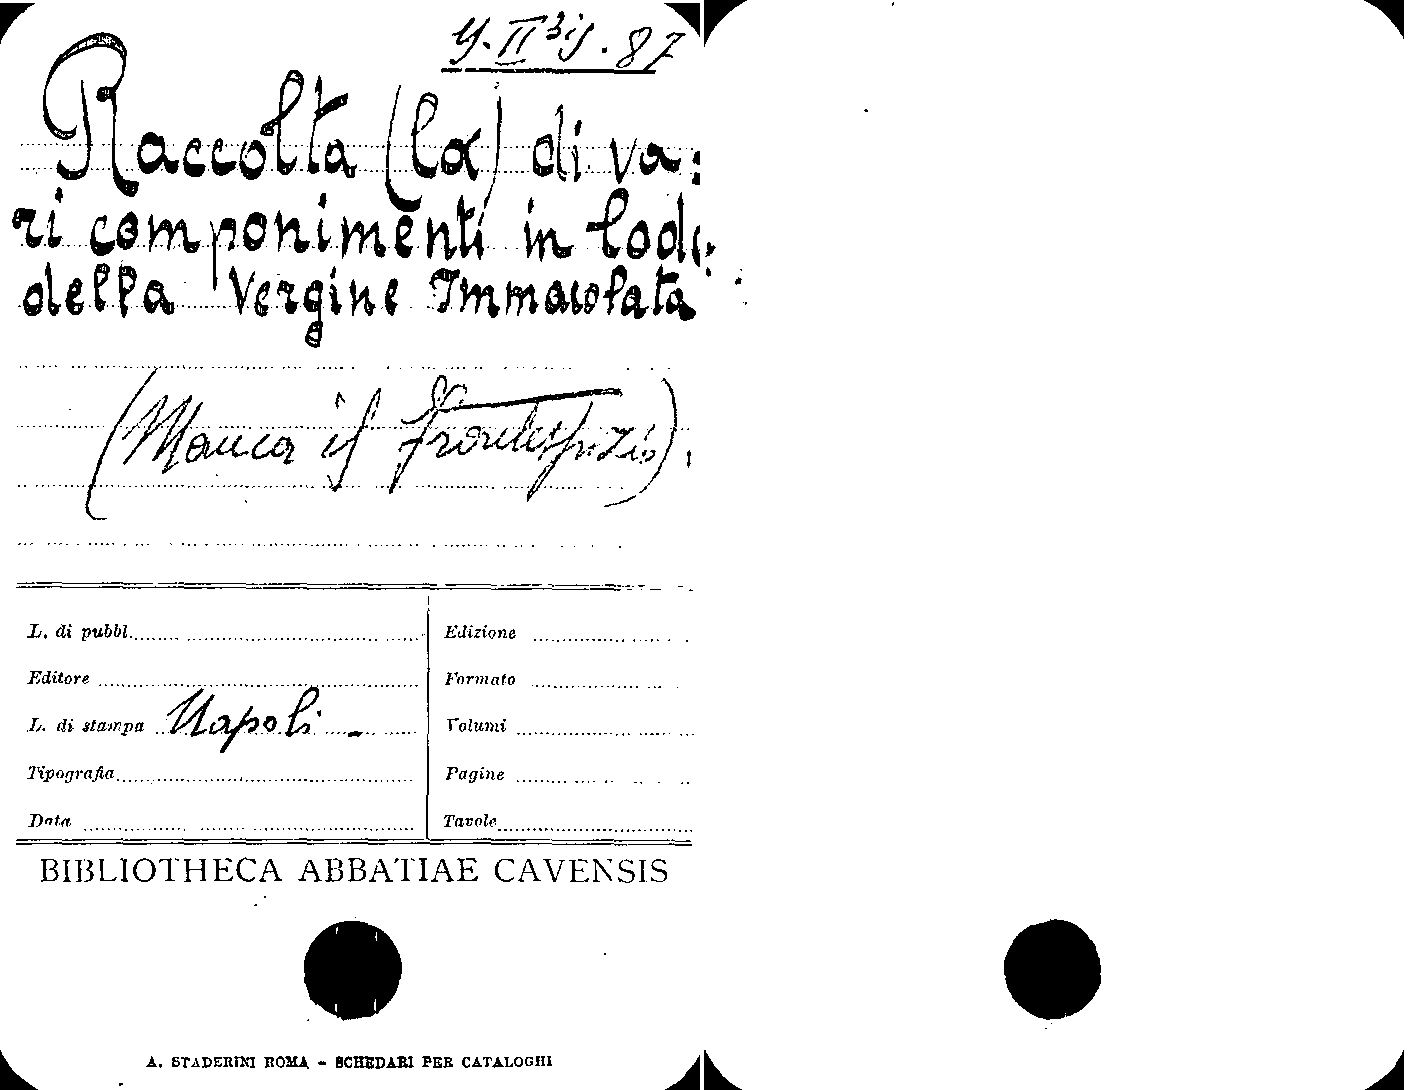 Y. II bis. 87
Raccolta (la) di va:
ri componimenti in lode
della Vergine Immacolata
(Manca il frontespizio).
L. di pubbl.
Editore
L. di stampa Napoli -
Tipografia
Data
Edizione
Formato
Volumi
Pagine
Tavole
BIBLIOTHECA ABBATIAE CAVENSIS
A. STADERINI ROMA - SCHEDARI PER CATALOGHI